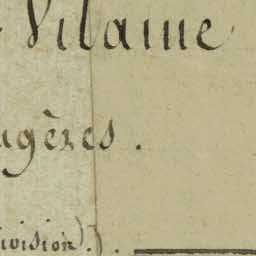 Vilaine
ugères.
ivision).